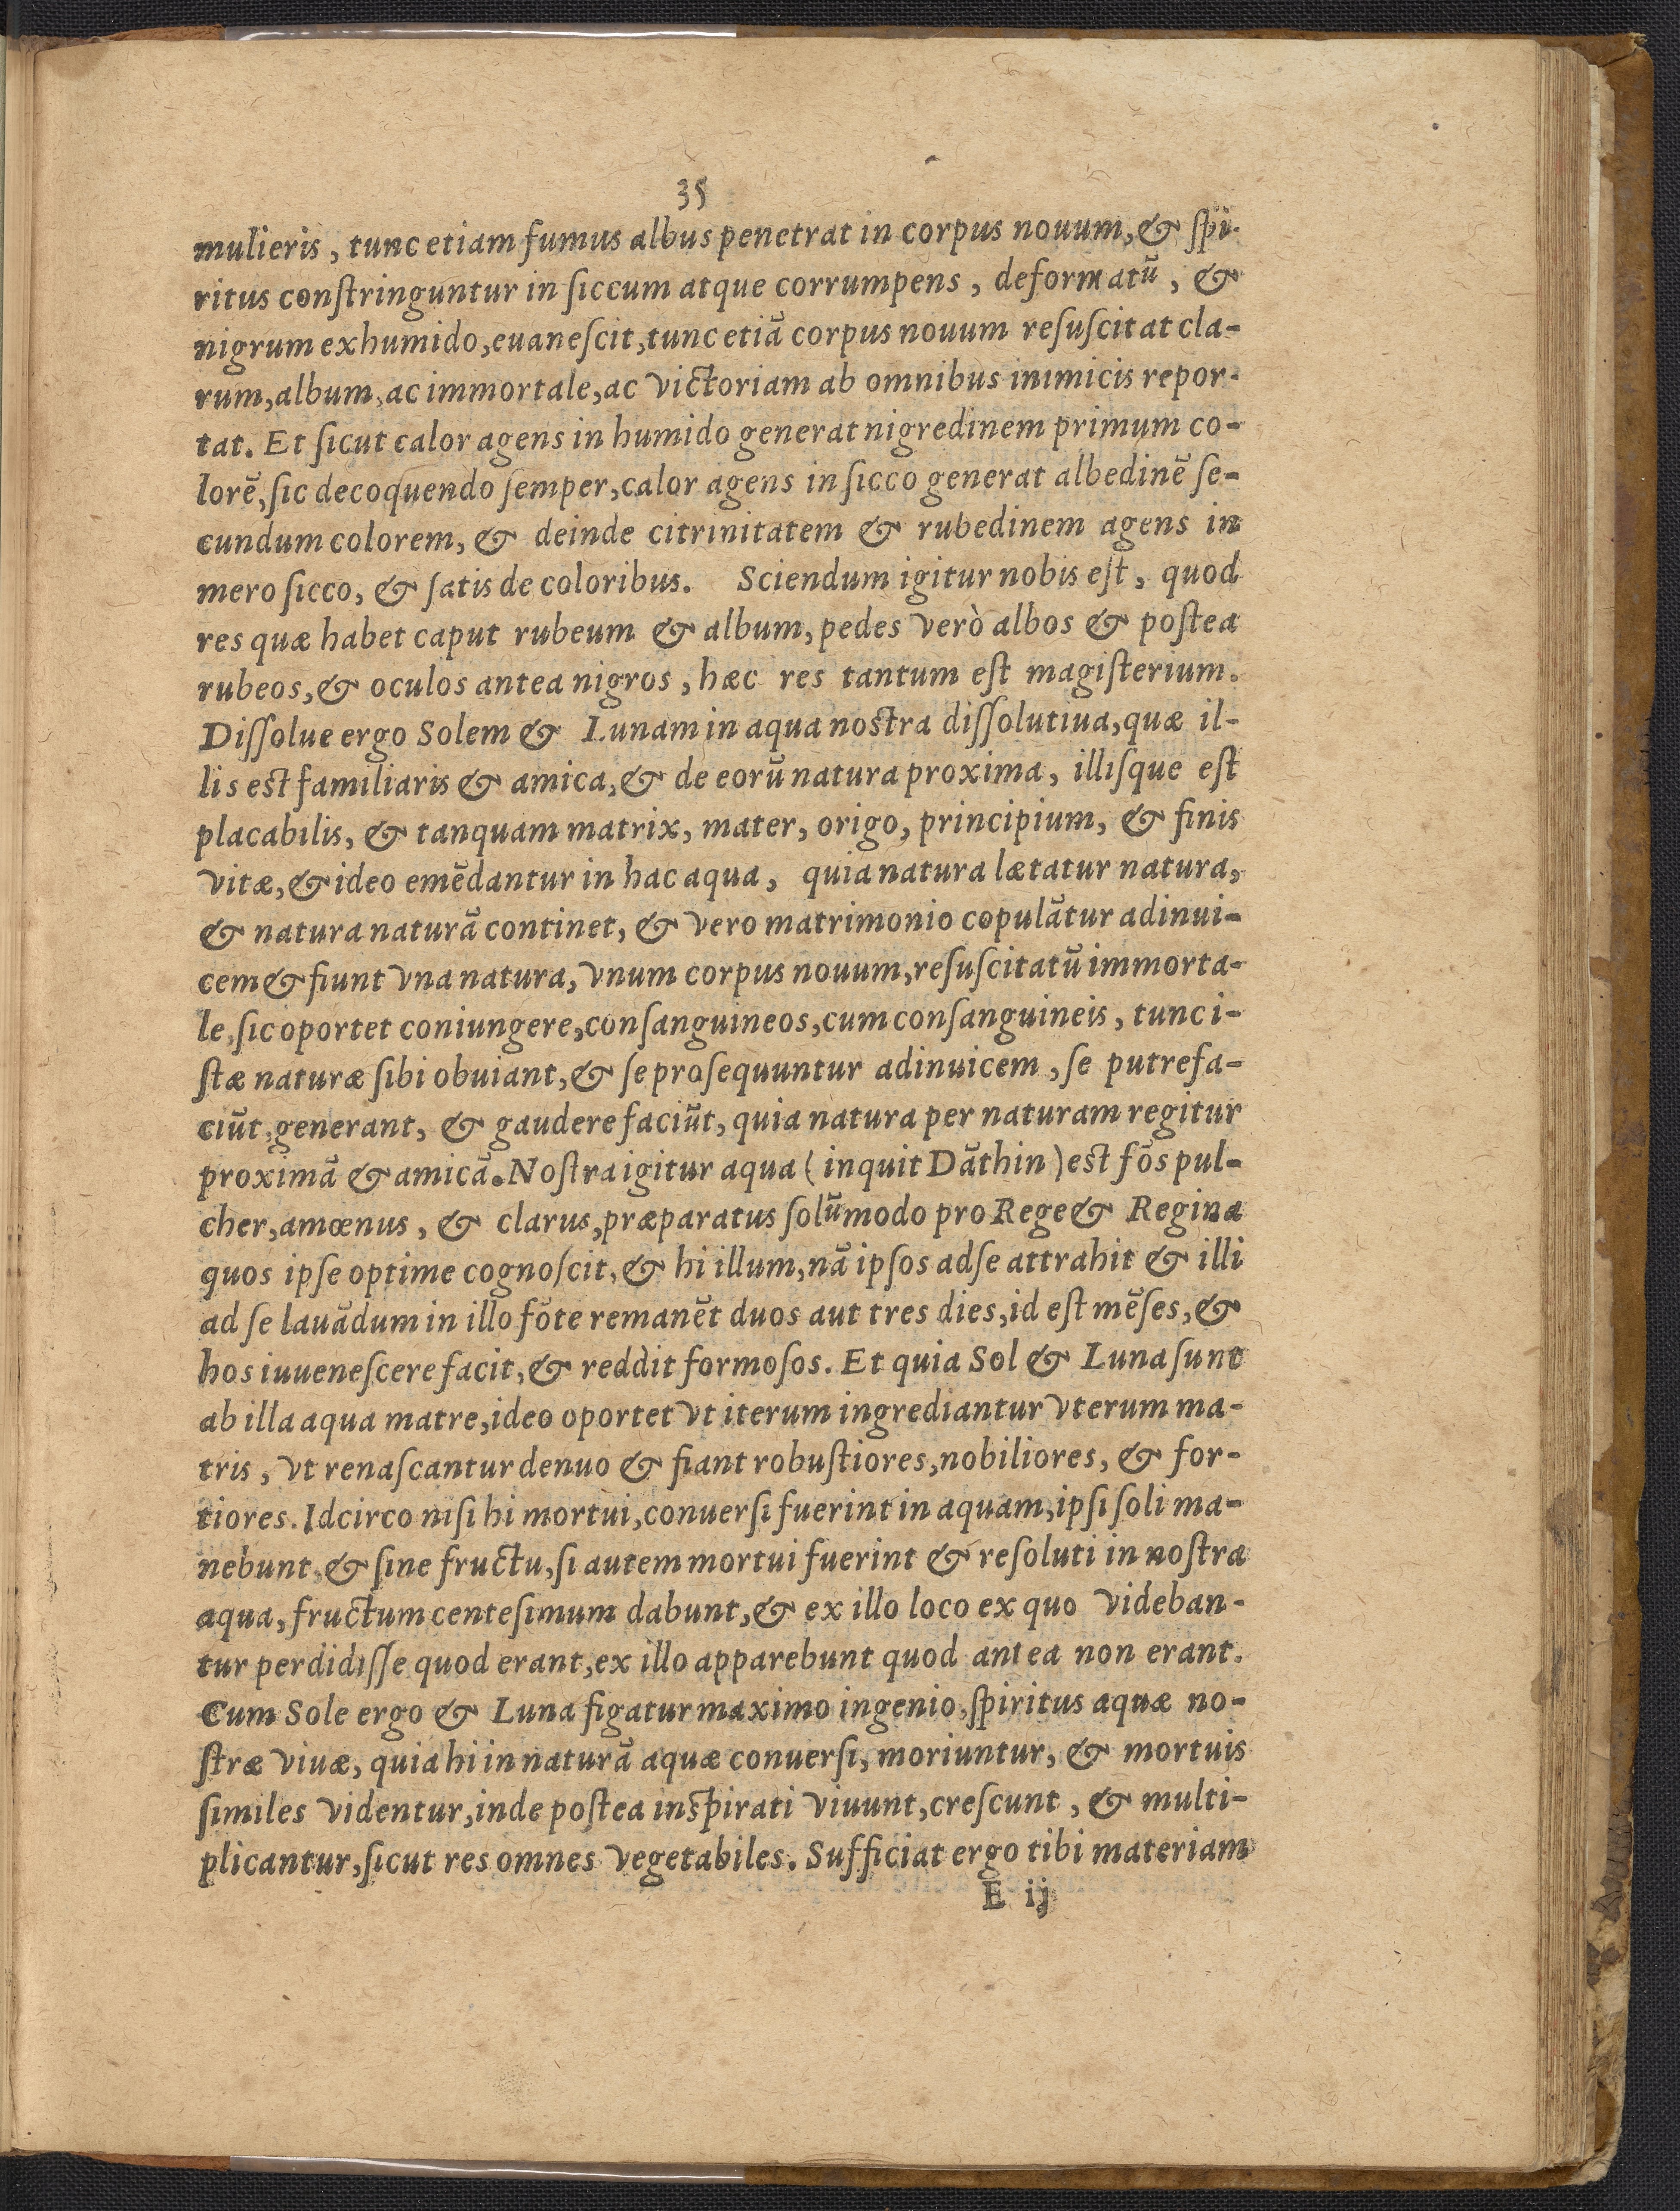 35
mulieris, tunc etiam fumus albus penetrat in corpus nouum, & ſpi-
ritus conſtringuntur in ſiccum atque corrumpens, deformatū, &
nigrum ex humido, euaneſcit, tunc etiā corpus nouum reſuſcitat cla-
rum, album, ac immortale, ac victoriam ab omnibus inimicis repor-
tat. Et ſicut calor agens in humido generat nigredinem primum co-
lorē, ſic decoquendo ſemper, calor agens in ſicco generat albedinē ſe-
cundum colorem, & deinde citrinitatem & rubedinem agens in
mero ſicco, & ſatis de coloribus. Sciendum igitur nobis eſt, quod
res quæ habet caput rubeum & album, pedes verò albos & poſtea
rubeos, & oculos antea nigros, hæc res tantum eſt magiſterium.
Diſſolue ergo Solem & Lunam in aqua noſtra diſſolutiua, quæ il-
lis eſt familiaris & amica, & de eorū natura proxima, illiſque eſt
placabilis, & tanquam matrix, mater, origo, principium, & finis
vitæ, & ideo emēdantur in hac aqua, quia natura lætatur natura,
& natura naturā continet, & vero matrimonio copulātur adinui-
cem & fiunt vna natura, vnum corpus nouum, reſuſcitatū immorta-
le, ſic oportet coniungere, conſanguineos, cum conſanguineis, tunc i-
ſtæ naturæ ſibi obuiant, & ſe proſequuntur adinuicem, ſe putrefa-
ciūt, generant, & gaudere faciūt, quia natura per naturam regitur
proximā & amicā. Noſtra igitur aqua (inquit Dāthin) eſt fōs pul-
cher, amœnus, & clarus, præparatus ſolūmodo pro Rege & Regina
quos ipſe optime cognoſcit, & hi illum, nā ipſos ad ſe attrahit & illi
ad ſe lauādum in illo fōte remanēt duos aut tres dies, id eſt mēſes, &
hos iuueneſcere facit, & reddit formoſos. Et quia Sol & Luna ſunt
ab illa aqua matre, ideo oportet vt iterum ingrediantur vterum ma-
tris, vt renaſcantur denuo & fiant robuſtiores, nobiliores, & for-
tiores. Idcirco niſi hi mortui, conuerſi fuerint in aquam, ipſi ſoli ma-
nebunt, & ſine fructu, ſi autem mortui fuerint & reſoluti in noſtra
aqua, fructum centeſimum dabunt, & ex illo loco ex quo videban-
tur perdidiſſe quod erant, ex illo apparebunt quod antea non erant.
Cum Sole ergo & Luna figatur maximo ingenio, ſpiritus aquæ no-
ſtræ viuæ, quia hi in naturā aquæ conuerſi, moriuntur, & mortuis
ſimiles videntur, inde poſtea inſpirati viuunt, creſcunt, & multi-
plicantur, ſicut res omnes vegetabiles. Sufficiat ergo tibi materiam
E ij